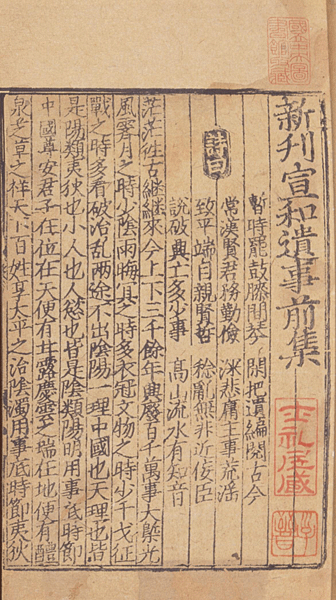 新刊宣和遺事前集
士礼居藏
詩曰
暫時罷鼓膝間琴 閑把遺編閱古今
常漢賢君務勤儉 深悲庸主事荒淫
致平端自親賢哲 稔亂無非近佞臣
說破興亡多少事 高山流水有知音
茫茫往古継継來今上下三千餘年興廢百千萬事大槩光
風霽月之時少陰雨晦冥之時多衣冠文物之時少干戈征
戰之時多看破治乱兩途不出陰陽一理中國也天理也皆
是陽類夷狄也小人也人慾也皆是陰類陽明用事底時節
中國尊安君子在位在天便有甘露慶雲之瑞在地便有醴
泉芝草之祥天下百姓享太平之治陰濁用事底時節夷狄